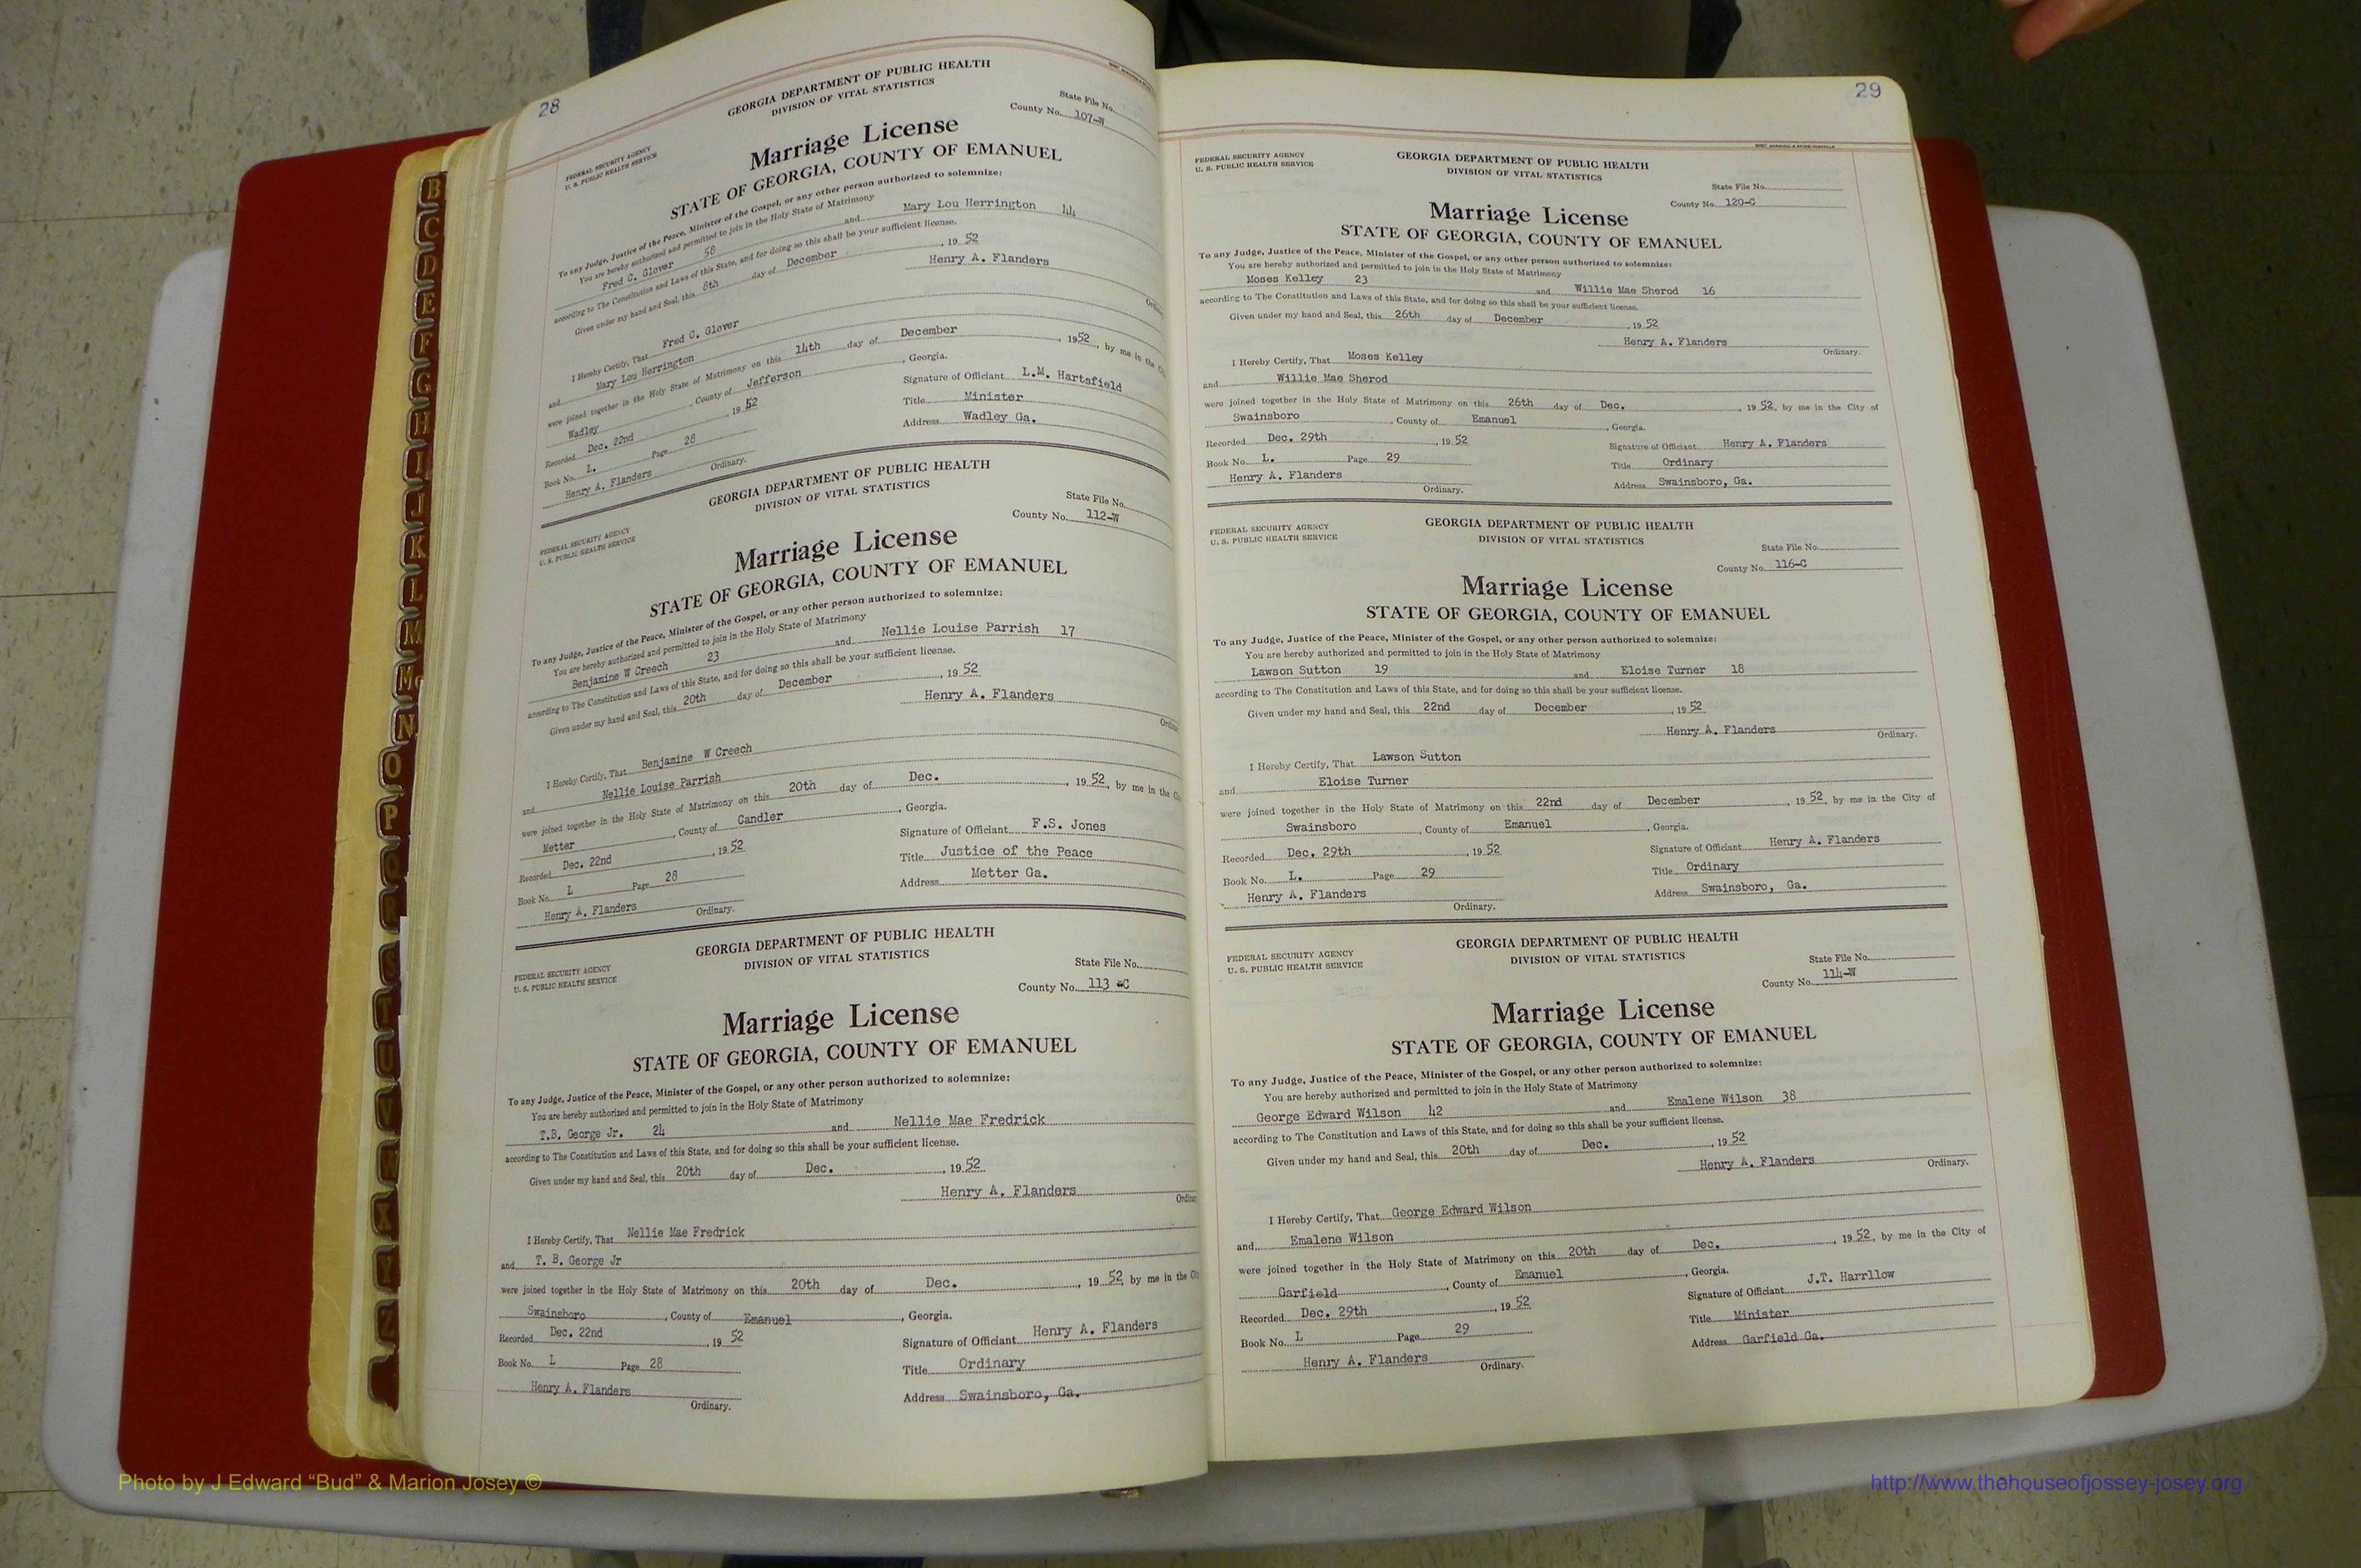 28
GEORGIA DEPARTMENT OF PUBLIC HEALTH
DIVISION OF VITAL STATISTICS
FEDERAL SECURITY AGENCY
U. S. PUBLIC HEALTH SERVICE
State File No.
County No. 107-W
Marriage License
STATE OF GEORGIA, COUNTY OF EMANUEL
To any Judge, Justice of the Peace, Minister of the Gospel, or any other person authorized to solemnize:
You are hereby authorized and permitted to join in the Holy State of Matrimony
Fred C. Glover 58 and Mary Lou Herrington 44
according to The Constitution and Laws of this State, and for doing so this shall be your sufficient license.
Given under my hand and Seal, this 8th day of December, 19 52
Henry A. Flanders
I Hereby Certify, That Fred C. Glover
and Mary Lou Herrington
were joined together in the Holy State of Matrimony on this 14th day of December, 1952, by me in the
Wadley, County of Jefferson, Georgia.
Recorded Dec. 22nd, 19 52
Signature of Officiant L.M. Hartsfield
Book No. L. Page 28
Title Minister
Henry A. Flanders
Address Wadley Ga.
Ordinary.
GEORGIA DEPARTMENT OF PUBLIC HEALTH
DIVISION OF VITAL STATISTICS
FEDERAL SECURITY AGENCY
U. S. PUBLIC HEALTH SERVICE
State File No.
County No. 112-W
Marriage License
STATE OF GEORGIA, COUNTY OF EMANUEL
To any Judge, Justice of the Peace, Minister of the Gospel, or any other person authorized to solemnize:
You are hereby authorized and permitted to join in the Holy State of Matrimony
Benjamine W Creech 23 and Nellie Louise Parrish 17
according to The Constitution and Laws of this State, and for doing so this shall be your sufficient license.
Given under my hand and Seal, this 20th day of December, 19 52
Henry A. Flanders
I Hereby Certify, That Benjamine W Creech
and Nellie Louise Parrish
were joined together in the Holy State of Matrimony on this 20th day of Dec., 19 52, by me in the
Metter, County of Candler, Georgia.
Recorded Dec. 22nd, 19 52
Signature of Officiant F.S. Jones
Book No. L Page 28
Title Justice of the Peace
Henry A. Flanders
Address Metter Ga.
Ordinary.
GEORGIA DEPARTMENT OF PUBLIC HEALTH
DIVISION OF VITAL STATISTICS
FEDERAL SECURITY AGENCY
U. S. PUBLIC HEALTH SERVICE
State File No.
County No. 113 C
Marriage License
STATE OF GEORGIA, COUNTY OF EMANUEL
To any Judge, Justice of the Peace, Minister of the Gospel, or any other person authorized to solemnize:
You are hereby authorized and permitted to join in the Holy State of Matrimony
T.B. George Jr. 24 and Nellie Mae Fredrick
according to The Constitution and Laws of this State, and for doing so this shall be your sufficient license.
Given under my hand and Seal, this 20th day of Dec., 19 52
Henry A. Flanders
I Hereby Certify, That Nellie Mae Fredrick
and T. B. George Jr
were joined together in the Holy State of Matrimony on this 20th day of Dec., 19 52, by me in the
Swainsboro, County of Emanuel, Georgia.
Recorded Dec. 22nd, 19 52
Signature of Officiant Henry A. Flanders
Book No. L Page 28
Title Ordinary
Henry A. Flanders
Address Swainsboro, Ga.
Ordinary.
29
FEDERAL SECURITY AGENCY
U. S. PUBLIC HEALTH SERVICE
GEORGIA DEPARTMENT OF PUBLIC HEALTH
DIVISION OF VITAL STATISTICS
State File No.
County No. 120-C
Marriage License
STATE OF GEORGIA, COUNTY OF EMANUEL
To any Judge, Justice of the Peace, Minister of the Gospel, or any other person authorized to solemnize:
You are hereby authorized and permitted to join in the Holy State of Matrimony
Moses Kelley 23 and Willie Mae Sherod 16
according to The Constitution and Laws of this State, and for doing so this shall be your sufficient license.
Given under my hand and Seal, this 26th day of December, 19 52
Henry A. Flanders
Ordinary.
I Hereby Certify, That Moses Kelley
and Willie Mae Sherod
were joined together in the Holy State of Matrimony on this 26th day of Dec., 19 52, by me in the City of
Swainsboro, County of Emanuel, Georgia.
Recorded Dec. 29th, 19 52
Signature of Officiant Henry A. Flanders
Book No. L. Page 29
Title Ordinary
Henry A. Flanders
Address Swainsboro, Ga.
Ordinary.
FEDERAL SECURITY AGENCY
U. S. PUBLIC HEALTH SERVICE
GEORGIA DEPARTMENT OF PUBLIC HEALTH
DIVISION OF VITAL STATISTICS
State File No.
County No. 116-C
Marriage License
STATE OF GEORGIA, COUNTY OF EMANUEL
To any Judge, Justice of the Peace, Minister of the Gospel, or any other person authorized to solemnize:
You are hereby authorized and permitted to join in the Holy State of Matrimony
Lawson Sutton 19 and Eloise Turner 18
according to The Constitution and Laws of this State, and for doing so this shall be your sufficient license.
Given under my hand and Seal, this 22nd day of December, 19 52
Henry A. Flanders
Ordinary.
I Hereby Certify, That Lawson Sutton
and Eloise Turner
were joined together in the Holy State of Matrimony on this 22nd day of December, 19 52, by me in the City of
Swainsboro, County of Emanuel, Georgia.
Recorded Dec. 29th, 19 52
Signature of Officiant Henry A. Flanders
Book No. L. Page 29
Title Ordinary
Henry A. Flanders
Address Swainsboro, Ga.
Ordinary.
FEDERAL SECURITY AGENCY
U. S. PUBLIC HEALTH SERVICE
GEORGIA DEPARTMENT OF PUBLIC HEALTH
DIVISION OF VITAL STATISTICS
State File No.
County No. 114-W
Marriage License
STATE OF GEORGIA, COUNTY OF EMANUEL
To any Judge, Justice of the Peace, Minister of the Gospel, or any other person authorized to solemnize:
You are hereby authorized and permitted to join in the Holy State of Matrimony
George Edward Wilson 42 and Emalene Wilson 38
according to The Constitution and Laws of this State, and for doing so this shall be your sufficient license.
Given under my hand and Seal, this 20th day of Dec., 19 52
Henry A. Flanders
Ordinary.
I Hereby Certify, That George Edward Wilson
and Emalene Wilson
were joined together in the Holy State of Matrimony on this 20th day of Dec., 19 52, by me in the City of
Garfield, County of Emanuel, Georgia.
Recorded Dec. 29th, 19 52
Signature of Officiant J.T. Harrllow
Book No. L Page 29
Title Minister
Henry A. Flanders
Address Garfield Ga.
Ordinary.
B
C
D
E
F
G
H
I
J
K
L
M
Mc
N
O
P
Photo by J Edward “Bud” & Marion Josey ©
http://www.thehouseofjossey-josey.org